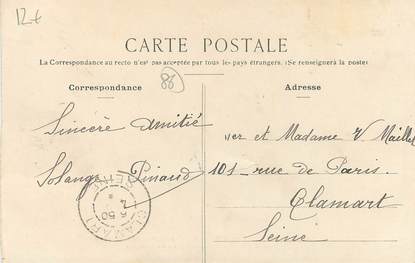 12+
CARTE POSTALE
La Correspondance au recto n'est pas acceptée par tous les pays étrangers. (Se renseigner à la poste)
86
Correspondance
Adresse
Sincère amitié
Solange Pinaud
et Madame V Maillet
101 rue de Paris.
Clamart
Seine
CLAMART
SEINE